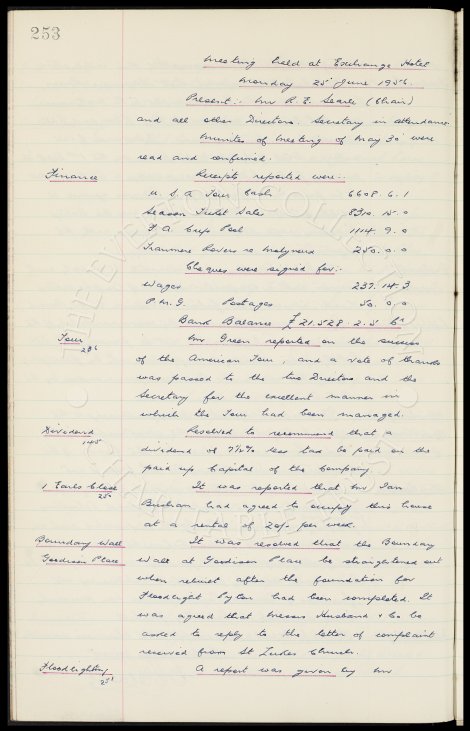 253
Meeting held at Exchange Hotel
Monday 25 June 1956.
Present:- Mr R. E. Searle (Chair)
and all other Directors. Secretary in attendance
Minutes of Meeting of May 30 were
read and confirmed.
Finance Receipts reported were:-
U. S. A Tour Cash 6608. 6. 1
Season Ticket Sales 8310. 15. 0
F. A. Cup Pool 1114. 9. 0
Tranmere Rovers re Molyneux 250. 0. 0
Cheques were signed for:-
Wages 237. 14. 3
P M. G. Postages 50. 0. 0
Bank Balance £21,528. 2. 5
Tour Mr Green reported on the success
of the American Tour, and a vote of thanks
was passed to the two Directors and the
Secretary for the excellent manner in
which the Tour had been managed.
Dividend Resolved to recommend that a
dividend of 7½% less tax be paid on the
paid up Capital of the Company.
1 Earls Close It was reported that Mr Ian
Buchan had agreed to occupy this house
at a rental of 20/- per week.
Boundary Wall It was resolved that the Boundary
Goodison Place Wall at Goodison Place be straightened out
when rebuilt after the foundation for
Floodlight Pylon had been completed. It
was agreed that Messrs Husband & Co be
asked to reply to the letter of complaint
received from St Lukes Church.
Floodlighting A report was given by Mr
THE EVERTON COLLECTION